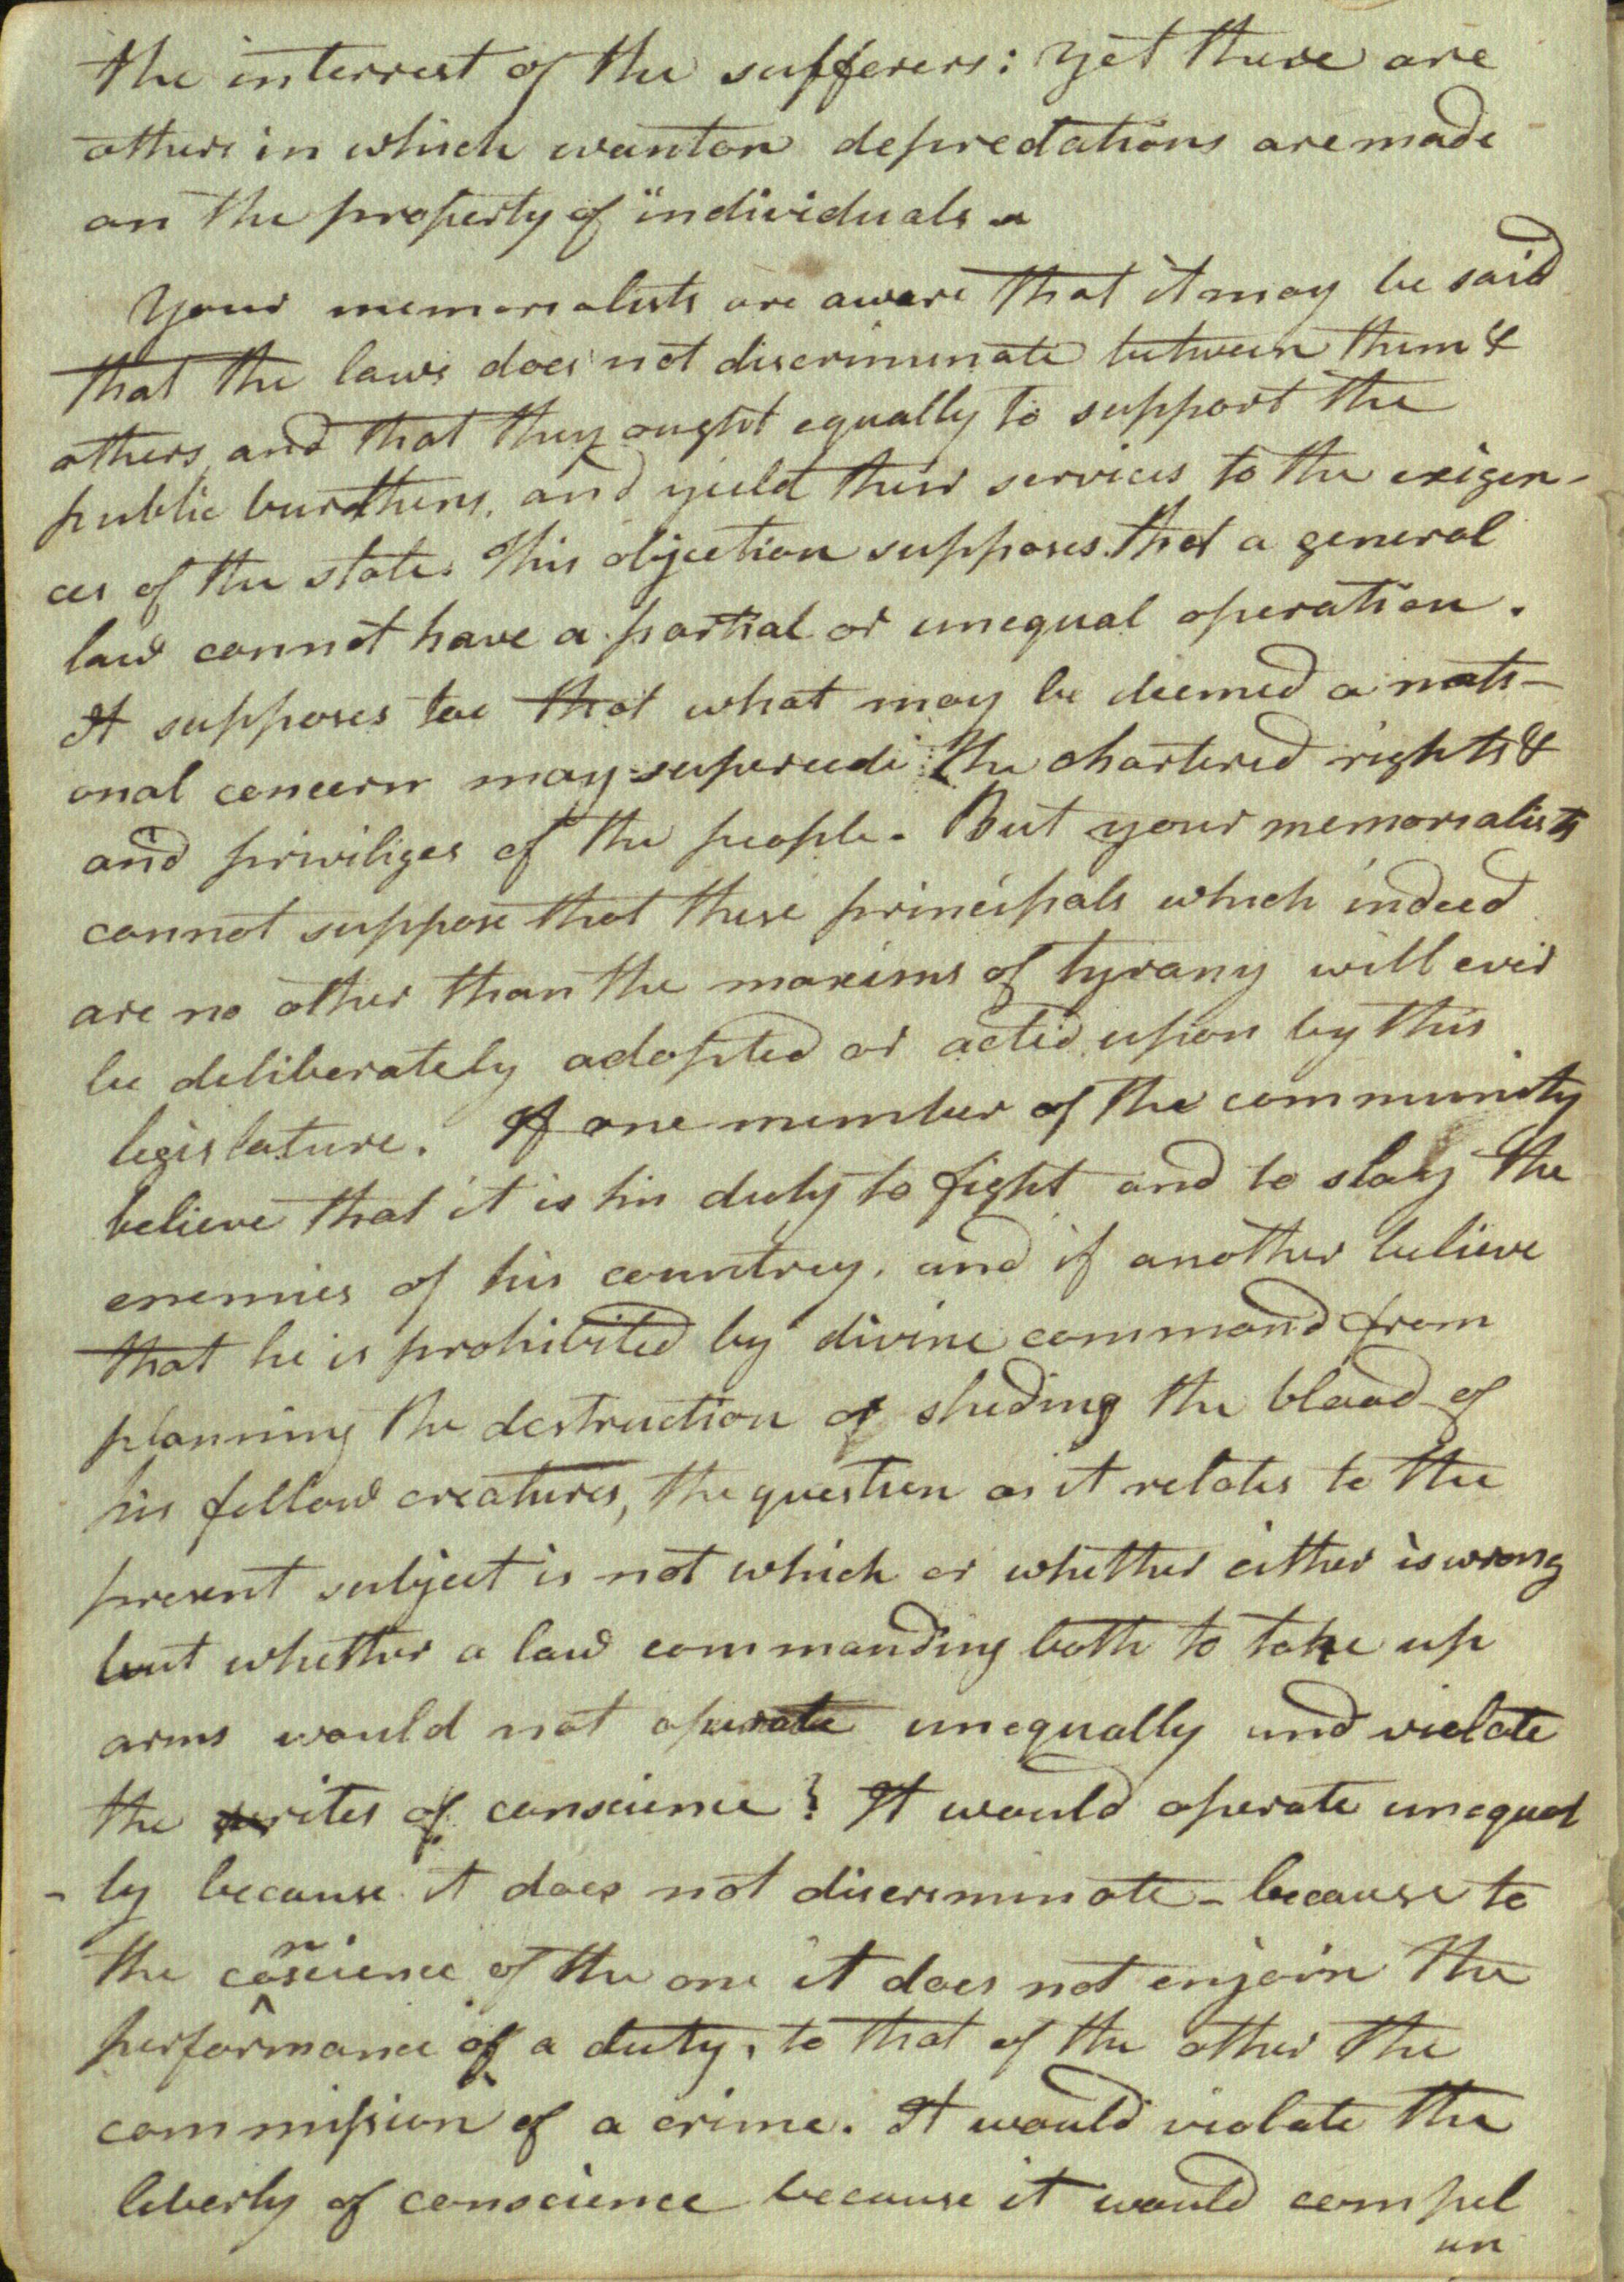 the interrest of the sufferers: yet there are
others in which wanton depredations are made
on the property of individuals.
Your memorialists are aware that it may be said
that the laws does not discriminate between them &
others and that they ought equally to support the
public burdthens, and yield their services to the exigen-
ces of the state. This objection supposes that a general
law cannot have a partial or unequal operation.
It supposes too that what may be deemed a nati-
onal concern may supercede the chartered rights &
and priviliges of the people. But your memorialists
cannot suppose that these principals which indeed
are no other than the maxims of tyrany will ever
be deliberately adopted or acted upon by this
legislature. If one member of the community
believe that it is his duty to fight and to slay the
enemies of his country, and if another believe
that he is prohibited by divine command from
planning the destruction or sheding the blood of
his fellow creatures, the question as it relates to the
present subject is not which or whether either is wrong
but whether a law commanding both to take up
arms would not operate unequally and violate
the rites of conscience? It would operate unequal
- ly because it does not discriminate - because to
the conscience of the one it does not enjoin the
performance of a duty, to that of the other the
commission of a crime. It would violate the
liberty of conscience because it would compel
un